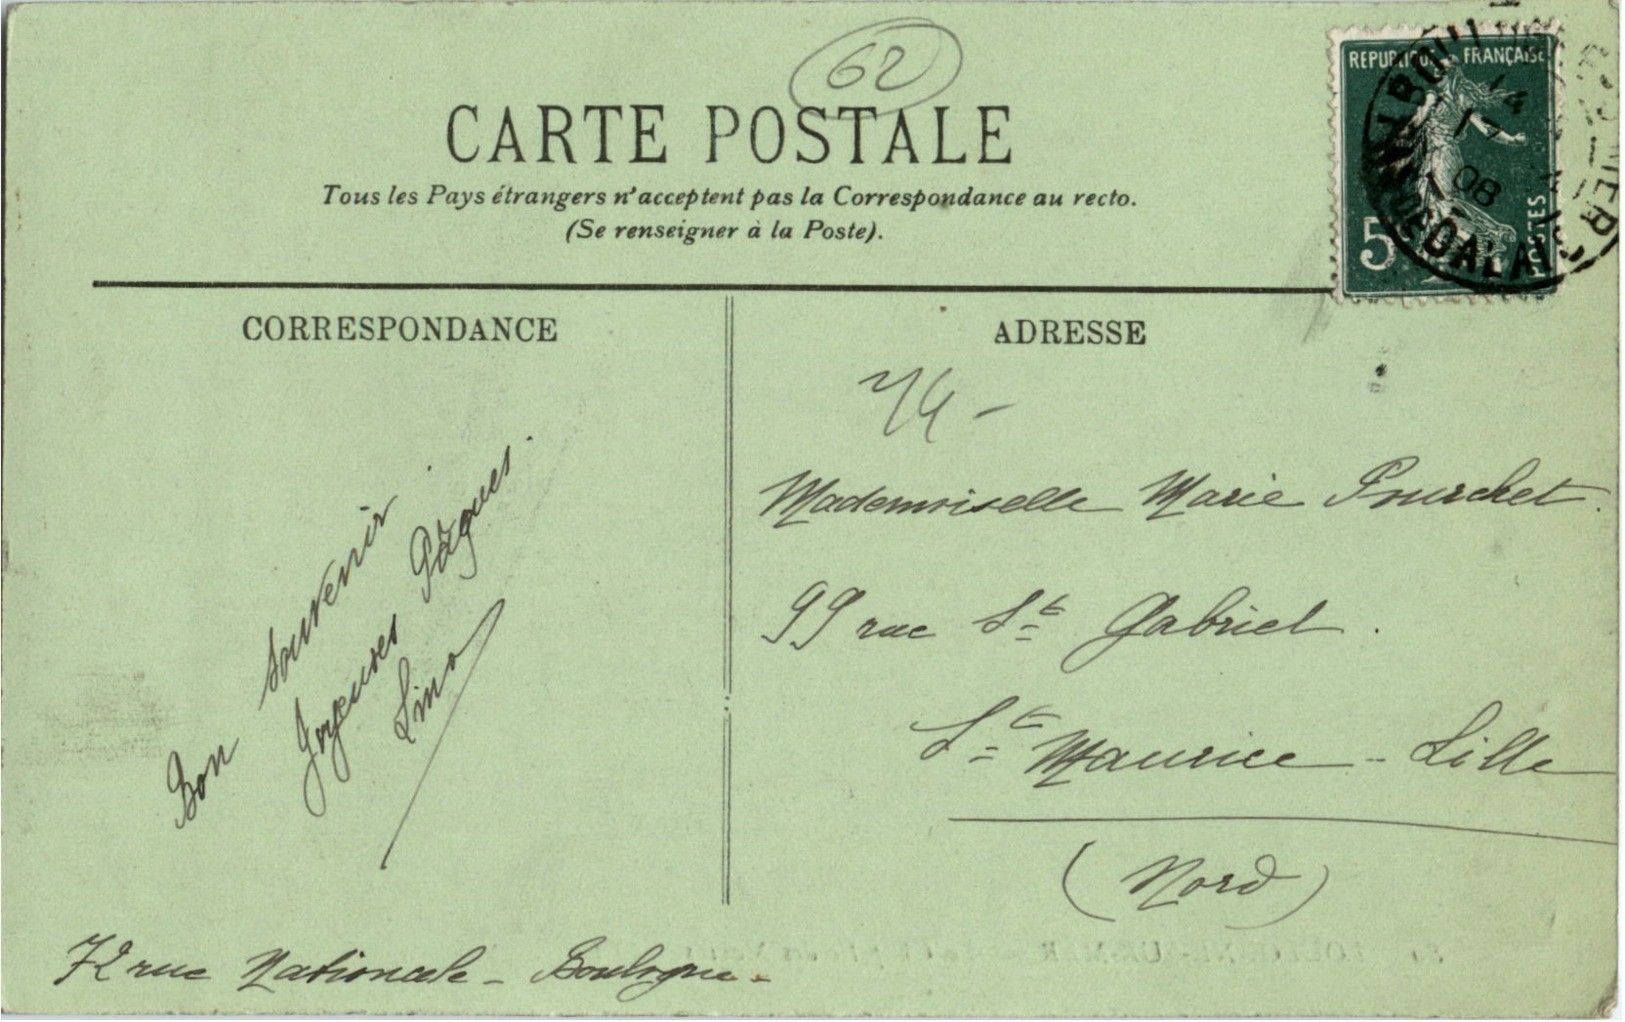 62
CARTE POSTALE
Tous les Pays étrangers n'acceptent pas la Correspondance au recto.
(Se renseigner à la Poste).
REPUBLIQUE FRANÇAISE
5
POSTES
08
PAS DE CALAIS
CORRESPONDANCE
ADRESSE
Bon souvenir
Joyeuses Pâques.
Lino
72 rue Nationale - Boulogne -
Mademoiselle Marie Pourchet.
99 rue St Gabriel.
St Maurice - Lille
(Nord)